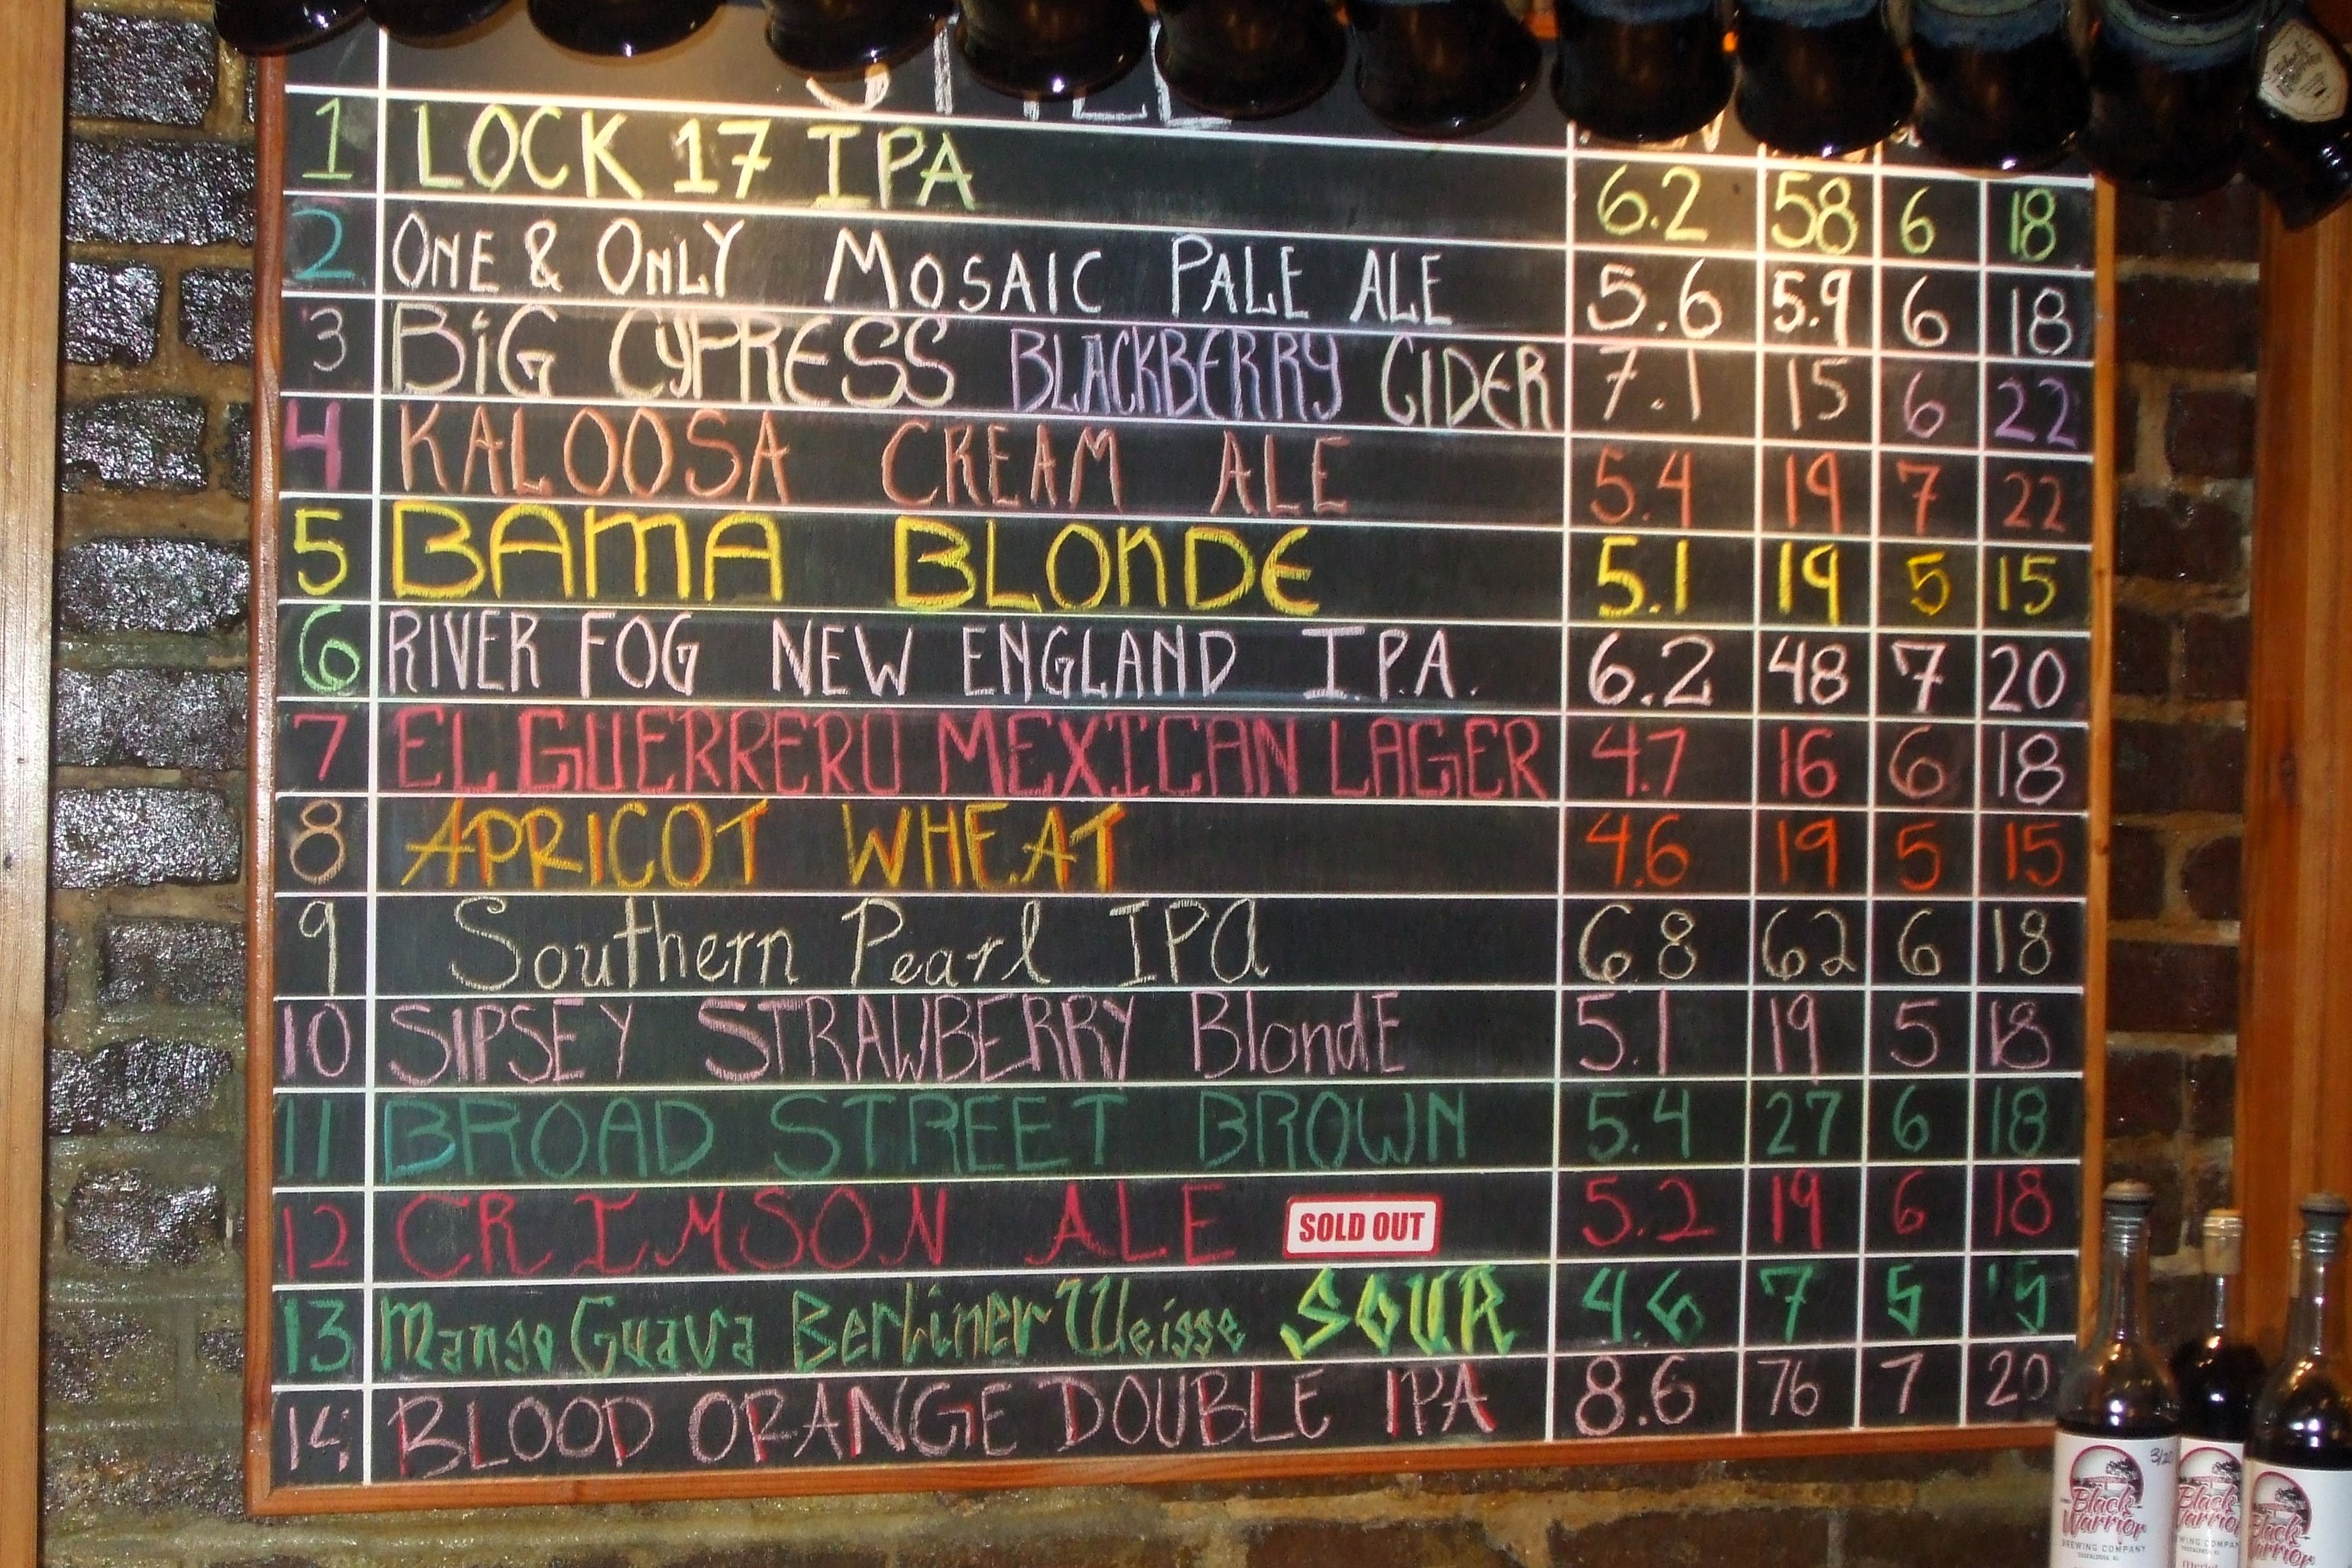 STYLE
1 LOCK 17 IPA 6.2 58 6 18
2 ONE & ONLY MOSAIC PALE ALE 5.6 5.9 6 18
3 BiG CYPRESS BLACKBERRY CIDER 7.1 15 6 22
4 KALOOSA CREAM ALE 5.4 19 7 22
5 BAMA BLONDE 5.1 19 5 15
6 RIVER FOG NEW ENGLAND I.P.A. 6.2 48 7 20
7 EL GUERRERO MEXICAN LAGER 4.7 16 6 18
8 APRICOT WHEAT 4.6 19 5 15
9 Southern Pearl IPA 6.8 62 6 18
10 SIPSEY STRAWBERRY BlondE 5.1 19 5 18
11 BROAD STREET BROWN 5.4 27 6 18
12 CRIMSON ALE SOLD OUT 5.2 19 6 18
13 Mango Guava Berliner Weisse SOUR 4.6 7 5 15
14 BLOOD ORANGE DOUBLE IPA 8.6 76 7 20
3/20
Black Warrior
BREWING COMPANY
TUSCALOOSA, AL
Black Warrior
BREWING COMPANY
Black Warrior